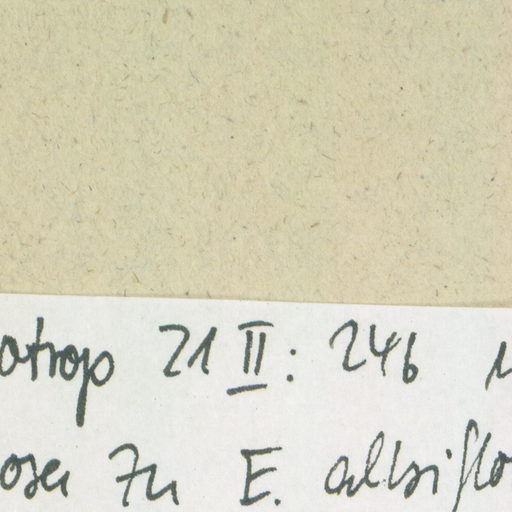 atrop 21 II: 246
osa zu E. albiflo